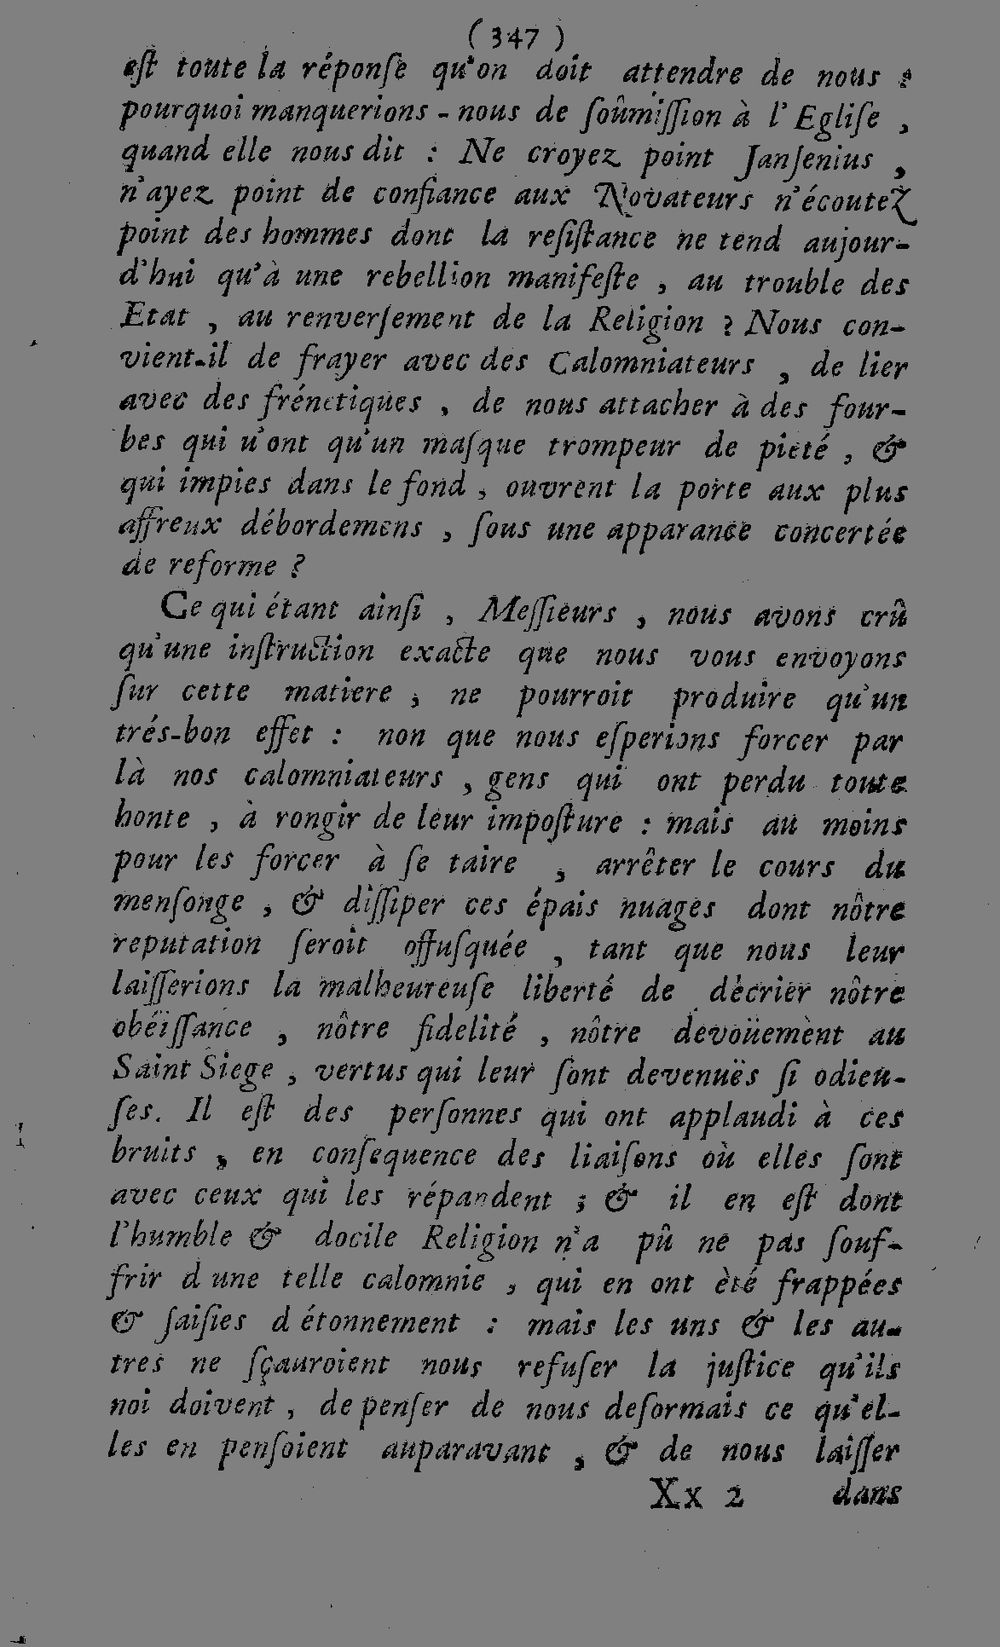 ( 347 )
eſt toute la réponſe qu'on doit attendre de nous :
pourquoi manquerions - nous de ſoûmiſſion à l' Egliſe ,
quand elle nous dit : Ne croyez point Janſenius ,
n'ayez point de confiance aux Novateurs n'écoutez
point des hommes dont la reſiſtance ne tend aujour-
d'hui qu'à une rebellion manifeſte , au trouble des
Etat , au renverſement de la Religion ? Nous con-
vient-il de frayer avec des Calomniateurs , de lier
avec des frénetiques , de nous attacher à des four-
bes qui n'ont qu'un maſque trompeur de pieté , &
qui impies dans le fond , ouvrent la porte aux plus
affreux débordemens , ſous une apparance concertée
de reforme ?
Ce qui étant ainſi , Meſſieurs , nous avons crû
qu'une inſtruction exacte que nous vous envoyons
ſur cette matiere , ne pourroit produire qu'un
trés-bon effet : non que nous eſperions forcer par
là nos calomniateurs , gens qui ont perdu toute
honte , à rongir de leur impoſture : mais au moins
pour les forcer à ſe taire , arrêter le cours du
menſonge , & diſſiper ces épais nuages dont nôtre
reputation ſeroit offuſquée , tant que nous leur
laiſſerions la malheureuſe liberté de dècrier nôtre
obéïſſance , nôtre fidelité , nôtre devoüemènt au
Saint Siege , vertus qui leur ſont devenuës ſi odieu-
ſes. Il eſt des perſonnes qui ont applaudi à ces
bruits , en conſequence des liaiſons où elles ſont
avec ceux qui les répandent ; & il en eſt dont
l'humble & docile Religion n'a pû ne pas ſouf-
frir d une telle calomnie , qui en ont èté frappées
& ſaiſies d étonnement : mais les uns & les au-
tres ne ſçauroient nous refuſer la juſtice qu'ils
noi doivent , de penſer de nous deſormais ce qu'el-
les en penſoient auparavant , & de nous laiſſer
Xx 2 dans